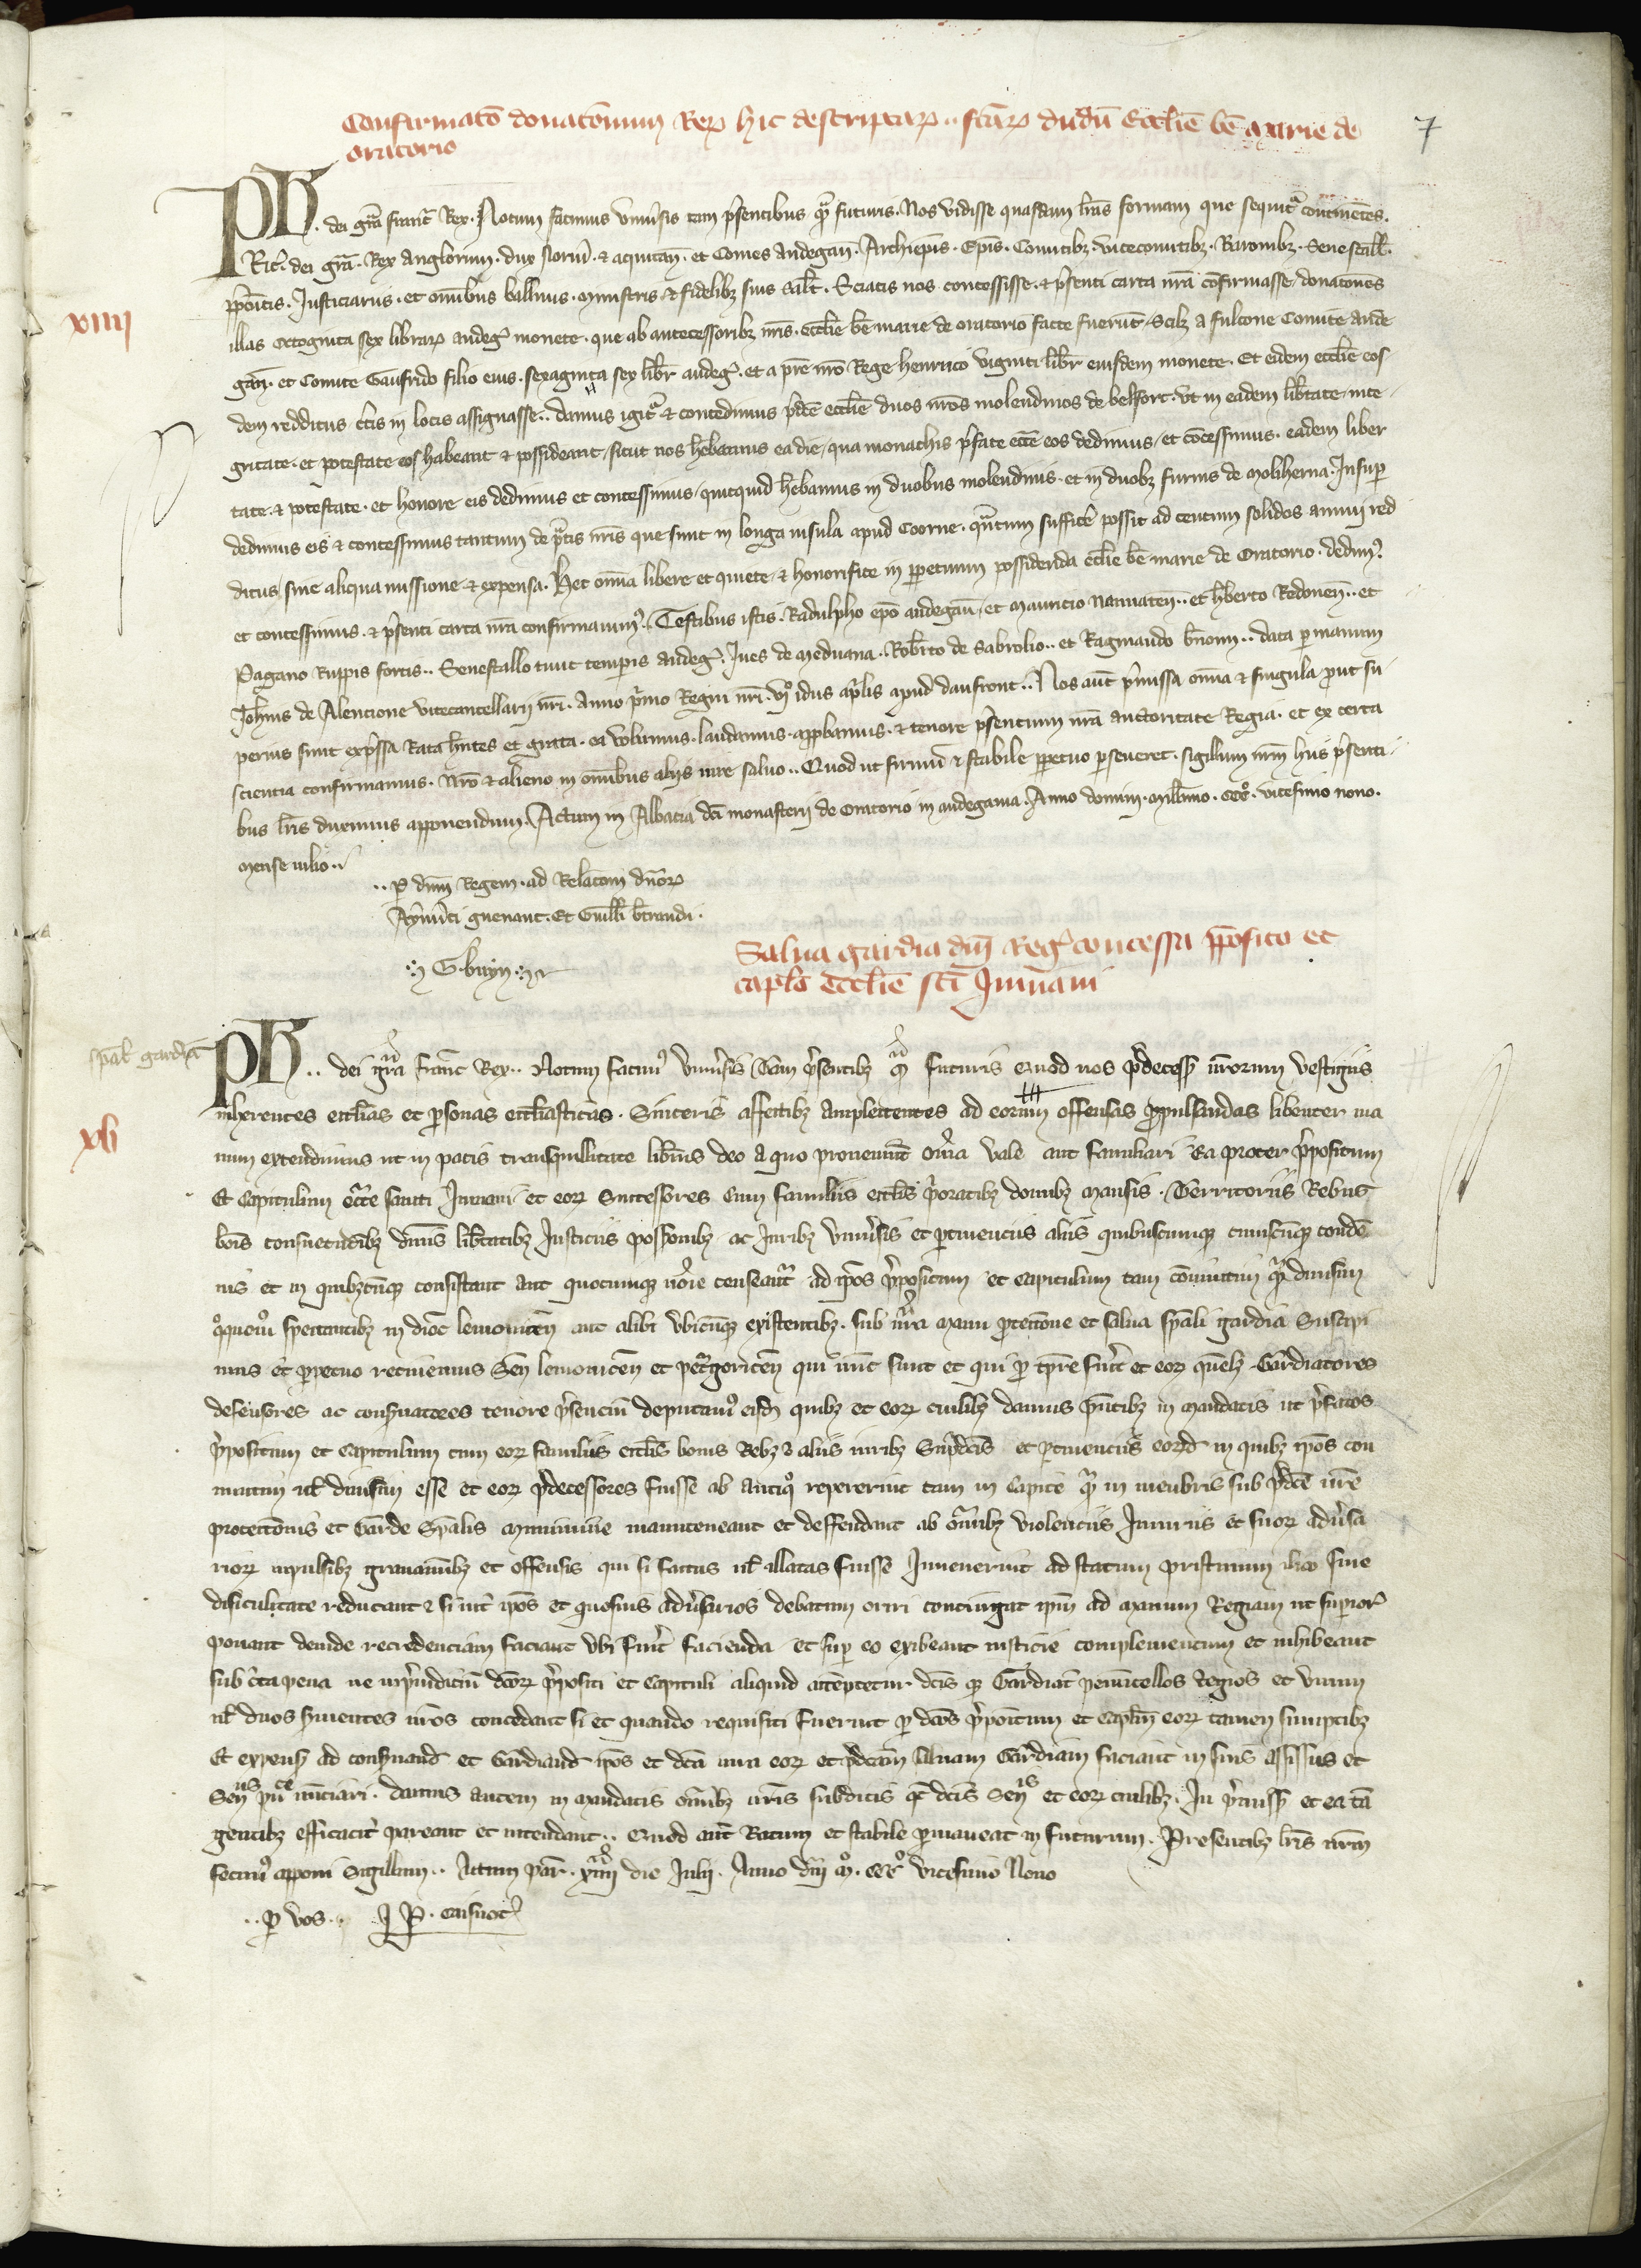 Confirmatō donatōnum Reꝝ hic descriptaꝝ .. fcāꝝ dudū Eccl̄ie bē Marie de
oratorio
7
Ph. dei gr̄a Franc̄ Rex. Notum facimus vniu̓sis tam p̓sentibus qᷓ futuris. Nos vidisse quasdam lr̄as formam que sequit᷑ continētes.
Ric̓. dei gr̄a. Rex Anglorum. dux Norm̄. et aquitan̄. et Comes andegan̄. Archiep̄is. Ep̄is. Comitibꝫ. vicecomitibꝫ. Baronibꝫ. Senescall̄.
p̄poitis. Justiciariis. et om̄ibus balliuis. Ministris. et fidelibꝫ suis Salt̄. Sciatis nos concessisse. et p̓senti carta nr̄a cōfirmasse donatōnes
xiiii
illas octoginta sex libraꝝ andeg̓ monete. que ab antecessoribꝫ nr̄is. eccl̄ie bē marie de oratorio facte fuerūt. Scilꝫ a fulcone Comite ande
gan̄. et Comite Gaufrido filio eius. sexaginta sex libr̄ andeg̓. et a pr̄e nr̄o Rege henrico viginti libr̄ eiusdem monete. Et eidem eccl̄ie eos
dem redditus c̓tis in locis assignasse.. damus igit᷑ et concedimus p̓dc̄e eccl̄ie duos nr̄os molendinos de belfort. vt in eadem lib̄tate. inte
gritate. et potestate eos habeant et possideant. sicut nos h̄ebamus ea die. qua monachis p̓fate ecc̄e eos dedimus. et cōcessimus. eadem liber
tate. et potestate. et honore eis dedimus et concessimus. quicquid h̄ebamus in duobus molendinis. et in duobꝫ furnis de Moliherna. Insup̱
dedimus eis et concessimus tantum de p̓tis nr̄is que sunt in longa insula apud Coorne. qᷓntum sufficē possit ad centum solidos annui red
ditus. sine aliqua missione. et expensa. Hec om̄ia libere et quiete. et honorifice in p̱petuum possidenda eccl̄ie bē marie de Oratorio. dedim᷒
et concessimus. et p̓senti carta nr̄a confirmauim᷒. Testibus istis. Radulpho ep̄o andegau̓. et Mauricio Nannaten̄.. et h̄berto Redonen̄.. et
Pagano Ruppis fortis.. Senescallo tunc temporis andeg̓. Iues de Meduana. Rob̄to de Sabrolio.. et Raginando .. data p̱ manum
Joh̄nis de Alencione vicecancellarii nr̄i. Anno p̓mo Regni nr̄i. vjº idus ap̓lis apud danfront.. Nos aut̄ p̓missa om̄ia et singula prout su
perius sunt exp̓ssa Rata h̄ntes et grata. ea volumus. laudamus. app̱bamus. et tenore p̓sentium nr̄a auctoritate Regia. et ex certa
scientia confirmamus. Nr̄o et alieno in om̄ibus aliis iure saluo.. Quod ut firmū et stabile p̱petuo perseueret. sigillum nr̄m hiis p̓senti
bus lr̄is duximus apponendum. Actum in Abbatia dc̄i monasterij de Oratorio in andegauia. Anno domini. Mill̄mo. cccº. vicesimo nono.
Mense iulio..
.. p̱ dn̄m Regem. ad Relac̄om dn̄oꝝ
Aym̓ici guenant. Et Guill̄i b̄trandi.
G. buyn.
Salua gardia dn̄i Reg̓ concessa p̄posito et
capl̄o eccl̄ie sc̄i Juniani
sp̄al̄ gardia
Ph.. dei gr̄a Franc̄ Rex.. Notum facim᷒ vniu̓sis Tam p̓sentibꝫ qᷓ futuris Quod nos p̓decess̄ nr̄orum vestigiis
inherentes eccl̄ias et p̱sonas eccl̄iasticas. Sinceris affectibꝫ Amplectentes ad eorum offensas p̱pulsandas libenter ma
xv
num extendimus ut in pacis transquillitate lib̄ius deo a quo proueniūt om̄ia vale ant famulari Ea propter p̓positum
Et Capitulum ecc̄e sancti Juniani et eoꝝ Successores Cum familiis eccl̄iis p̓oratibꝫ domibꝫ mansis. Territoriis Rebus
bōis consuetudībꝫ lib̄tatibꝫ Justiciis possonibꝫ ac Juribꝫ vniu̓sis et p̱tinenciis aliis quibuscumqꝫ cuiuscūqꝫ condō
nis et in quibꝫcūqꝫ consistant aut quocumqꝫ nōie censeant᷑ ad ip̄os p̓positum et Capitulum tam cōmunitim qᷓ diuisim
qᵒquom̊ spectantibꝫ in dioc̄ lemouicen̄ aut alibi vbicūqꝫ existentibꝫ. sub nr̄a manu p̱tectōne et salua sp̄ali gardia Suscipi
mus et p̱petuo retinemus Sen̄ lemouicen̄ et pet̓goricen̄ qui nūc sunt et qui p̱ tp̄re fu̓it et eoꝝ quēlꝫ Gardiatores
defensores ac conseruatores tenore p̓senciū deputam᷒ eisd̄ quibꝫ et eoꝝ cuilibꝫ damus p̄ntibꝫ in mandatis ut p̓fatos
p̓positum et Capitulum cum eoꝝ familiis eccl̄iis bonis Rebꝫ et aliis iuribꝫ Sup̓dc̄is et p̱tinenciis eord̄ in quibꝫ ip̄os con
iunctim ul̄ diuisim esse et eoꝝ p̓decessores fuisse ab Antiqᵒ repererint tam in Capite qᷓ in menbris sub p̓dc̄e nr̄e
protectōnis et Garde Sp̄alis Munimine manuteneant et deffendant ab om̄ibꝫ violenciis Iniuriis et suoꝝ adu̓sa
rioꝝ inpulsibꝫ grauaminībꝫ et offensis qui si factas ul̄ illatas fuisse Inuenerint ad statum pristinum ilico sine
dificultate reducant et si int̓ ip̄os et quosuis adu̓sarios debatum oriri contingat ip̄m ad manum Regiam ut sup̱ior̄
ponant deinde recredenciam faciant vbi fu̓it facienda et sup̱ eo exibeant iusticie complementum et inhibeant
sub c̓ta pena ne inp̓iudiciū dc̄oꝝ p̓positi et Capituli aliquid attēptetur dc̄is qꝫ Gardiat̄ penūcellos Regios et vnum
ul̄ duos s̓uientes nr̄os concedant si et quando requisiti fuerint p̱ dc̄os p̓poitum et Capl̄m eoꝝ tamen sumptibꝫ
Et expens̄ ad cons̓uand̄ et Gardiand̄ ip̄os et dc̄a iura eoꝝ et p̓dc̄am saluam Gardiam faciant in suis assisiis et
Sen̄ pūce nūciari. damus autem in mandatis om̄ibꝫ nr̄is subditis qᵈ dc̄is Sen̄ et eoꝝ cuilibꝫ. In p̓miss̄ et ea tā
gentibꝫ efficacit̓ pareant et intendant.. Quod aut̄ Ratum et stabile p̱maneat in futurum. Presentibꝫ lr̄is nr̄m
fecim᷒ apponi Sigillum.. Actum par̄. xiiii die Julij. Anno dn̄i mº. cccº vicesimo Nono
.. p̱ vos..